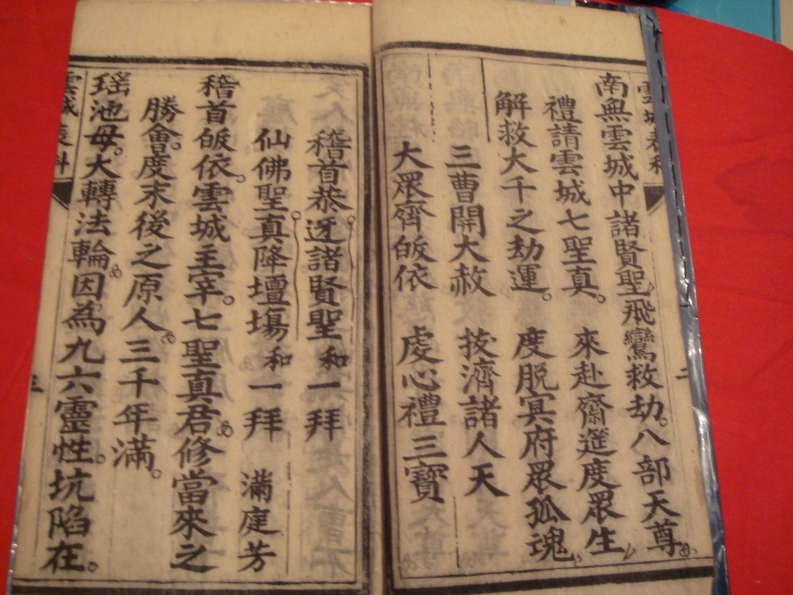 雲城表科
二
南無雲城中諸賢聖飛鸞救劫。八部天尊
禮請雲城七聖真。 來赴齋筵度眾生
解救大千之劫運。 度脫冥府眾孤魂
三曹開大赦 拔濟諸人天
大眾齊皈依 虔心禮三寶
稽首恭迓諸賢聖 和一拜
仙佛聖真降壇場 和一拜 滿庭芳
稽首皈依。雲城主宰。七聖真君。修當來之
勝會。度末後之原人。三千年滿。
瑤池母。大轉法輪。因為九六靈性。坑陷在。
雲城表科
三